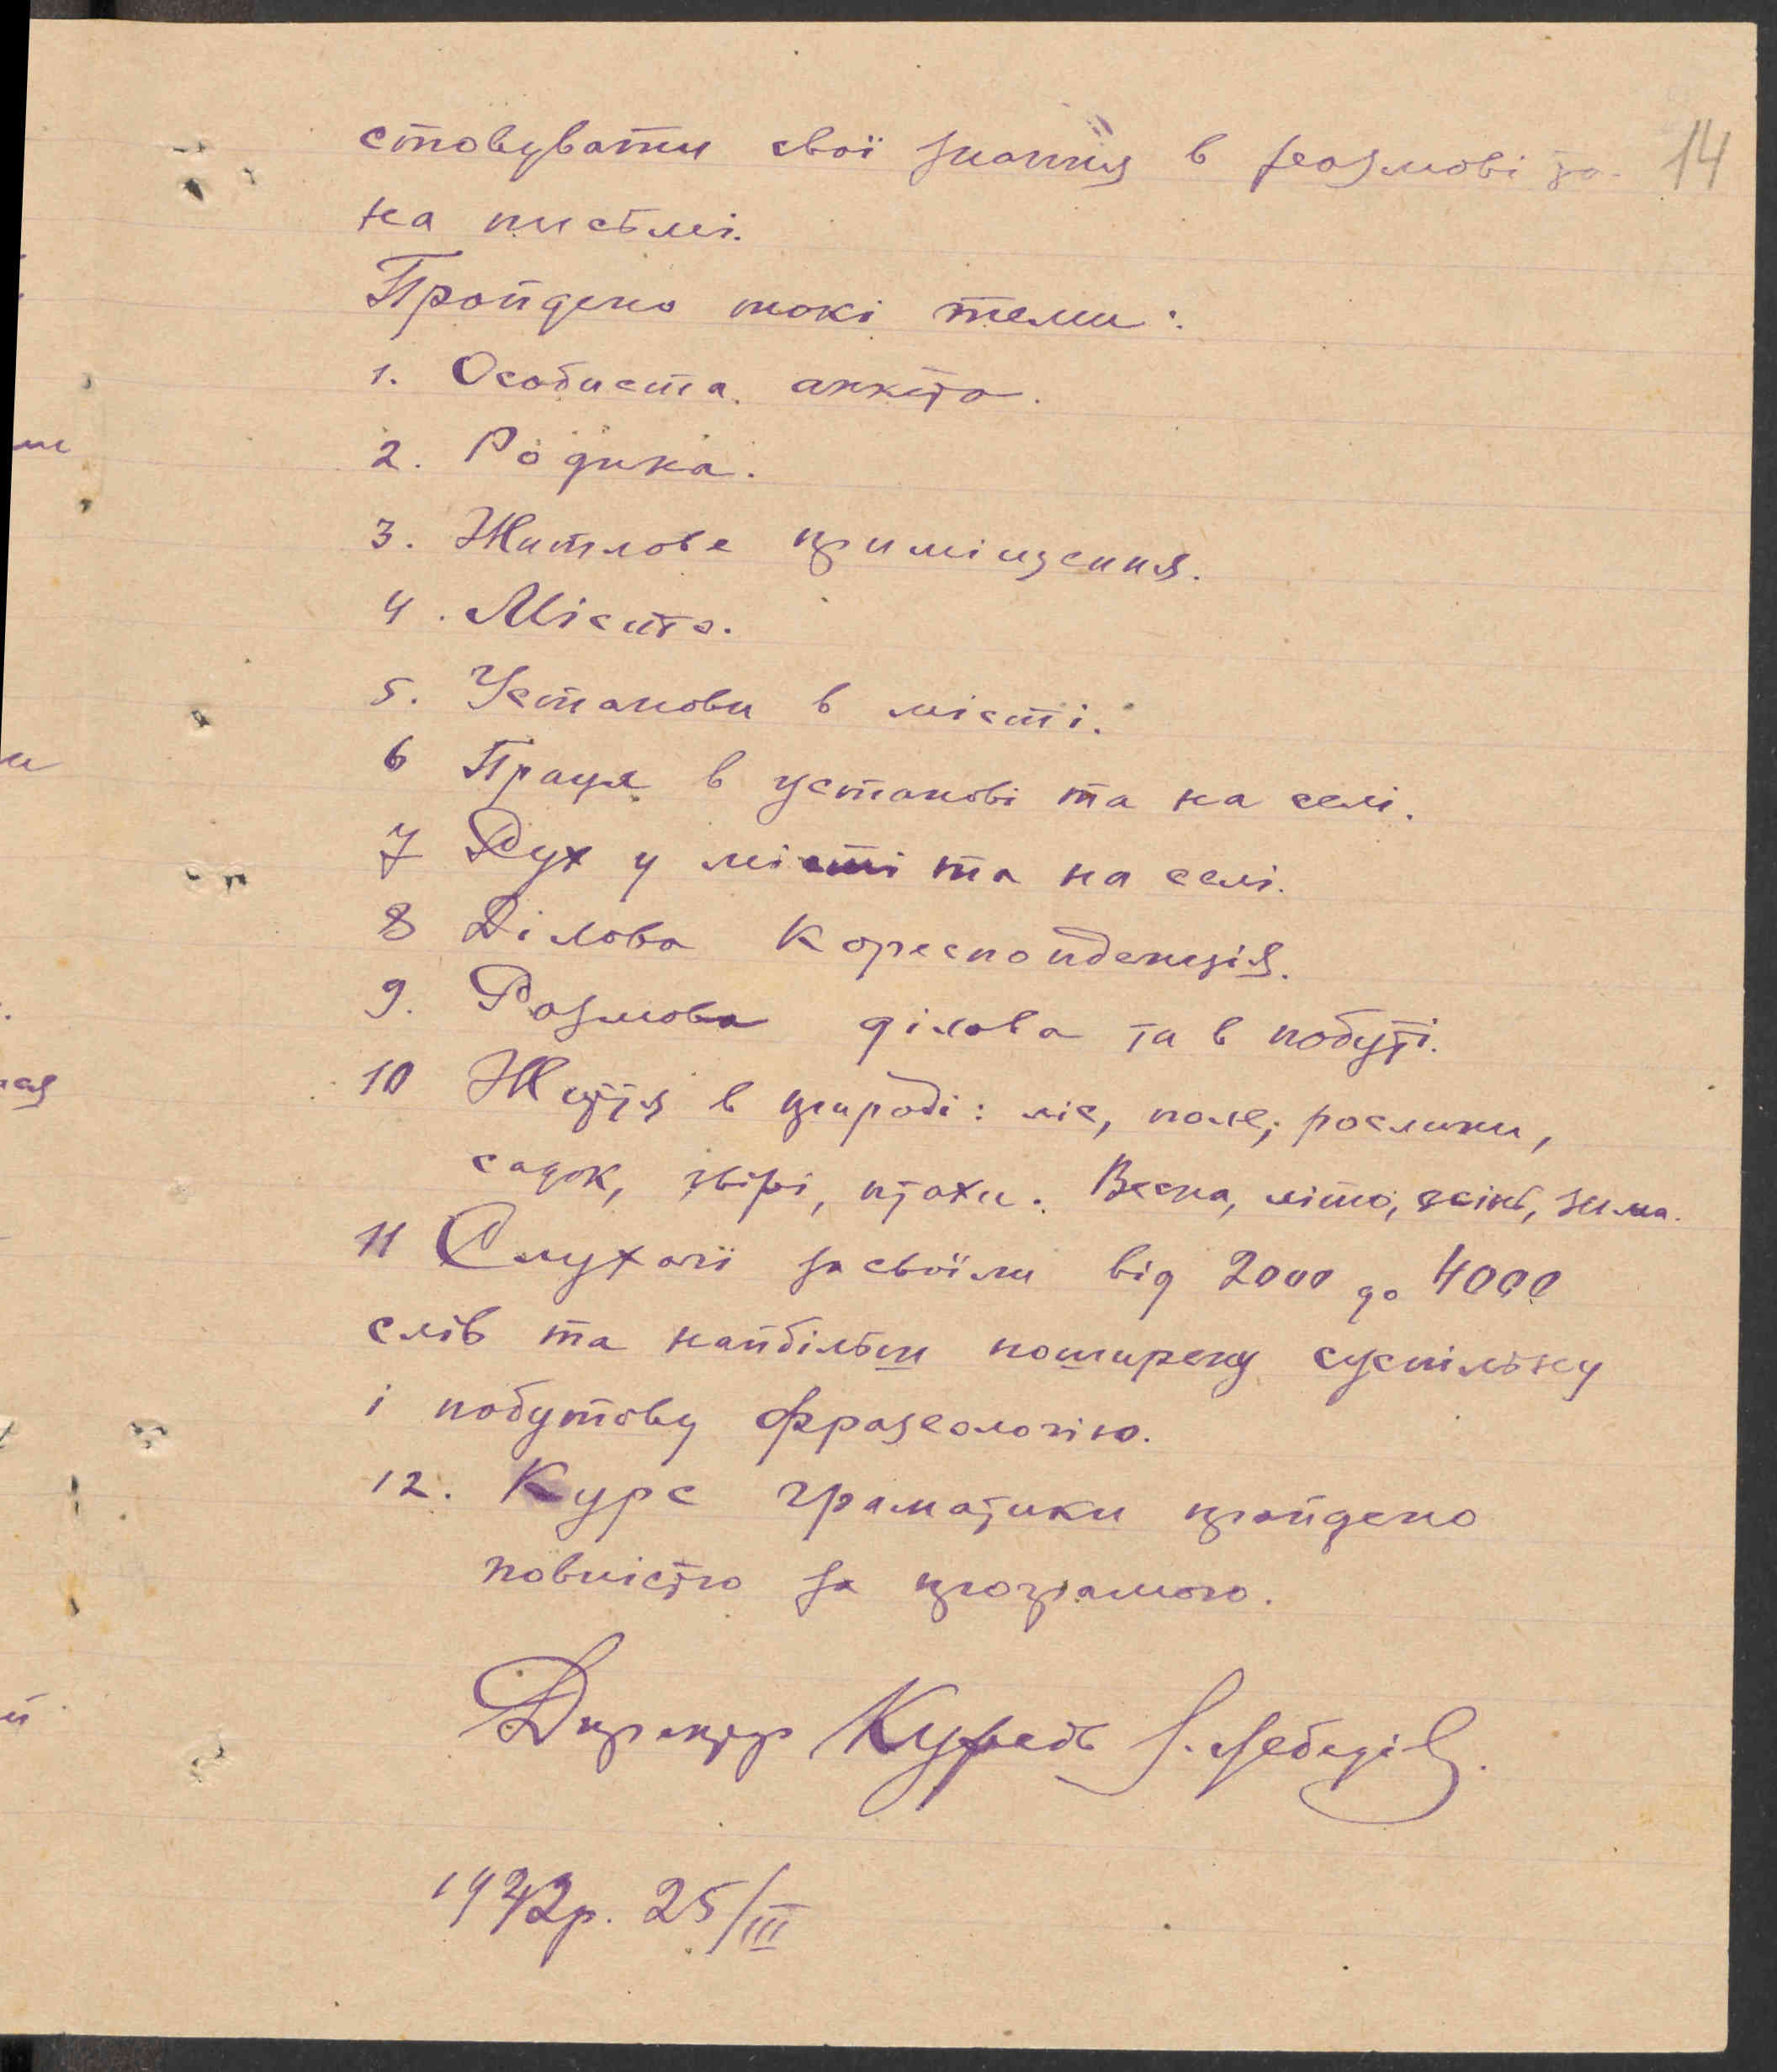 14
стовувати свої знання в розмові та
на письмі.
Пройдено такі теми:
1. Особиста анкета.
2. Родина.
3. Житлове приміщення.
4. Місто.
5. Установи в місті.
6 Праця в установі та на селі.
7 Рух у місті та на селі.
8 Ділова кореспонденція.
9. Розмова ділова та в побуті.
10 Життя в природі: ліс, поле, рослини,
садок, звірі, птахи. Весна, літо, осінь, зима.
11 Слухачі засвоїли від 2000 до 4000
слів та найбільш поширену суспільну
і побутову фразеологію.
12. Курс граматики пройдено
повністю за програмою.
Директор Курсів Лебедів.
1942р. 25/III